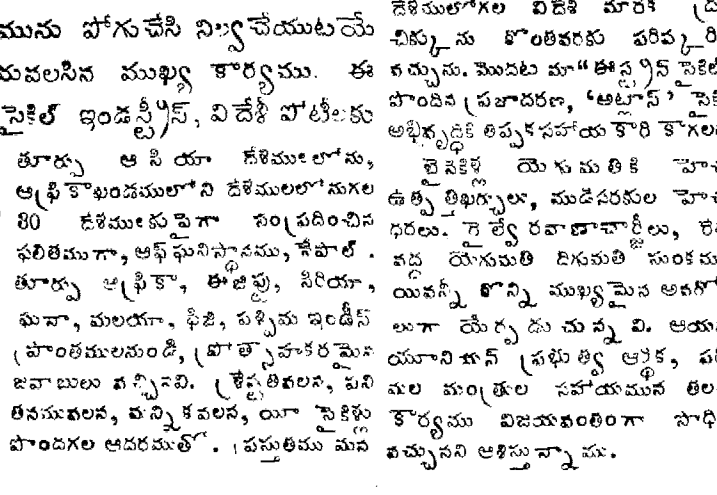 మును పోగుచేసి నిల్వచేయుటయే
వలసిన ముఖ్య కార్యము. ఈ
సైకిల్ ఇండస్ట్రీస్, విదేశీ పోటీలకు
తూర్పు ఆసియా దేశములోను,
ఆఫ్రికాఖండములోని దేశములలోనుగల
80 దేశముకుపైగా సంప్రదించిన
ఫలితముగా, ఆఫ్ఘనిస్థానము, నేపాల్.
తూర్పు ఆఫ్రికా, ఈజిప్టు, సిరియా,
ఘనా, మలయా, ఫిజి, పశ్చిమ ఇండీస్
ప్రాంతములనుండి, ప్రోత్సాహకరమైన
జవాబులు వచ్చినవి. శ్రేష్టతవలన, పని
తనమువలన, మన్నికవలన, యీ సైకిళ్లు
పొందగల ఆదరముతో. ప్రస్తుతము మన
దేశములోగల విదేశీ మారక
చిక్కును కొంతవరకు పరిష్కరి
వచ్చును. మొదట మా "ఈస్ట్రన్ సైకిల్
పొందిన ప్రజాదరణ, 'అట్లాస్' సైకి
అభివృద్ధికి తిప్పక సహాయకారి కాగల
బైసికిళ్ల యెగుమతికి హెచ
ఉత్పత్తిఖర్చులు, ముడిసరకుల హెచ
ధరలు. రైల్వే రవాణాచార్జీలు,
వద్ద యెగుమతి దిగుమతి సుంకము
యివన్నీ కొన్ని ముఖ్యమైన అవరో
లుగా యేర్పడుచున్నవి. ఆయ
యూనియన్ ప్రభుత్వ ఆర్థిక,
మల మంత్రుల సహాయమున తల
కార్యము విజయవంతంగా సాధి
వచ్చునని ఆశిస్తున్నాము.